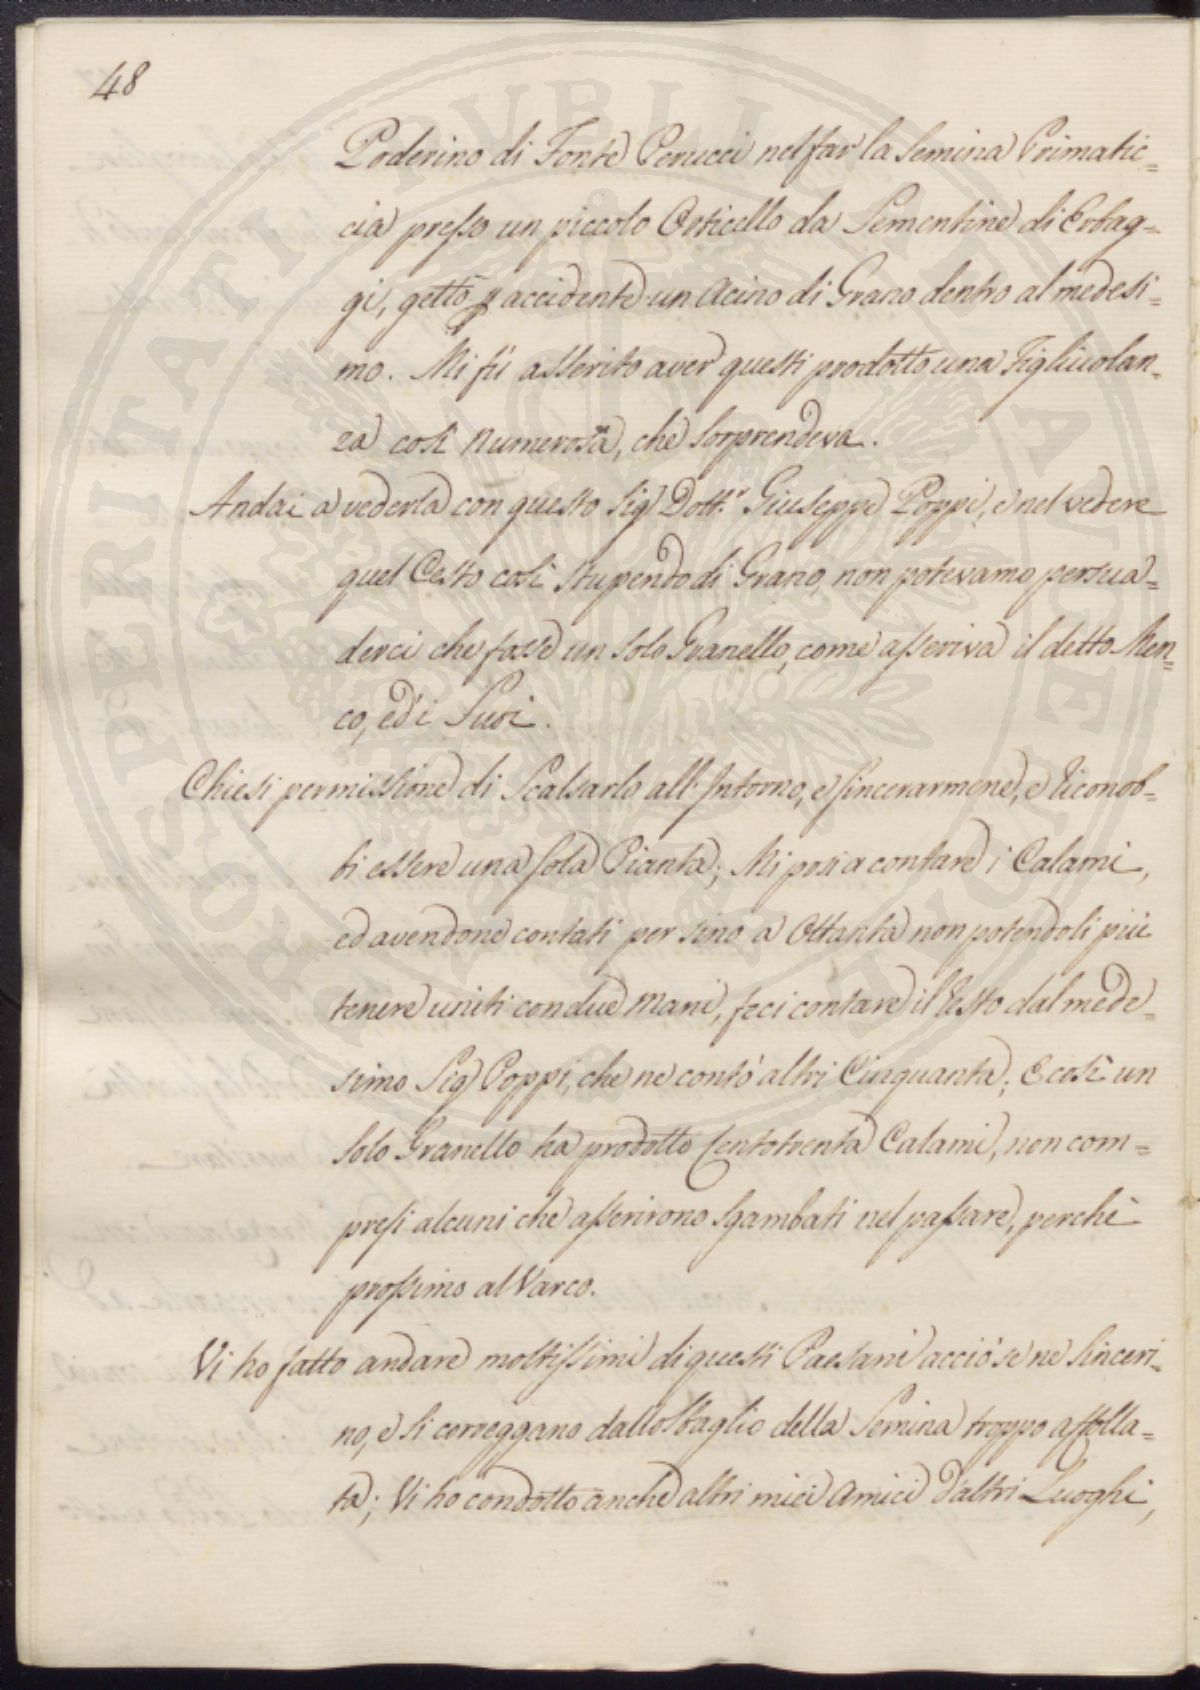 48
Poderino di Fonte Perucci nel far la Semina Primatic=
cia presso un piccolo Orticello da Sementine di Erbag=
gi, gettò p accidente un Acino di Grano dentro al medesi=
mo. Mi fù asserito aver questi prodotto una Figliuolan=
za così numerosa, che sorprendeva.
Andai a vederla con questo Sig Dott.r Giuseppe Poppi, e nel vedere
quel Cesto così stupendo di Grano, non potevamo persua=
derci che fosse un solo Granello, come asseriva il detto Men=
co, ed i Suoi.
Chiesi permissione di Scalzarlo all'Intorno, e sincerarmene, e riconob=
bi essere una sola Pianta; Mi posi a contare i Calami,
ed avendone contati per sino a Ottanta non potendoli più
tenere uniti con due mani, feci contare il resto dal mede=
simo Sig Poppi, che ne contò altri Cinquanta; E così un
solo Granello ha prodotto Centotrenta Calami, non com=
presi alcuni che asserirono sgambati nel passare, perchè
prossimo al Varco.
Vi ho fatto andare moltissimi di questi Paesani acciò se ne sinceri=
no, e si correggano dallo sbaglio della Semina troppo affolla=
ta; Vi ho condotto anche altri miei Amici d'altri Luoghi,
PROSPERITATI PUBLICAE AUGENDAE